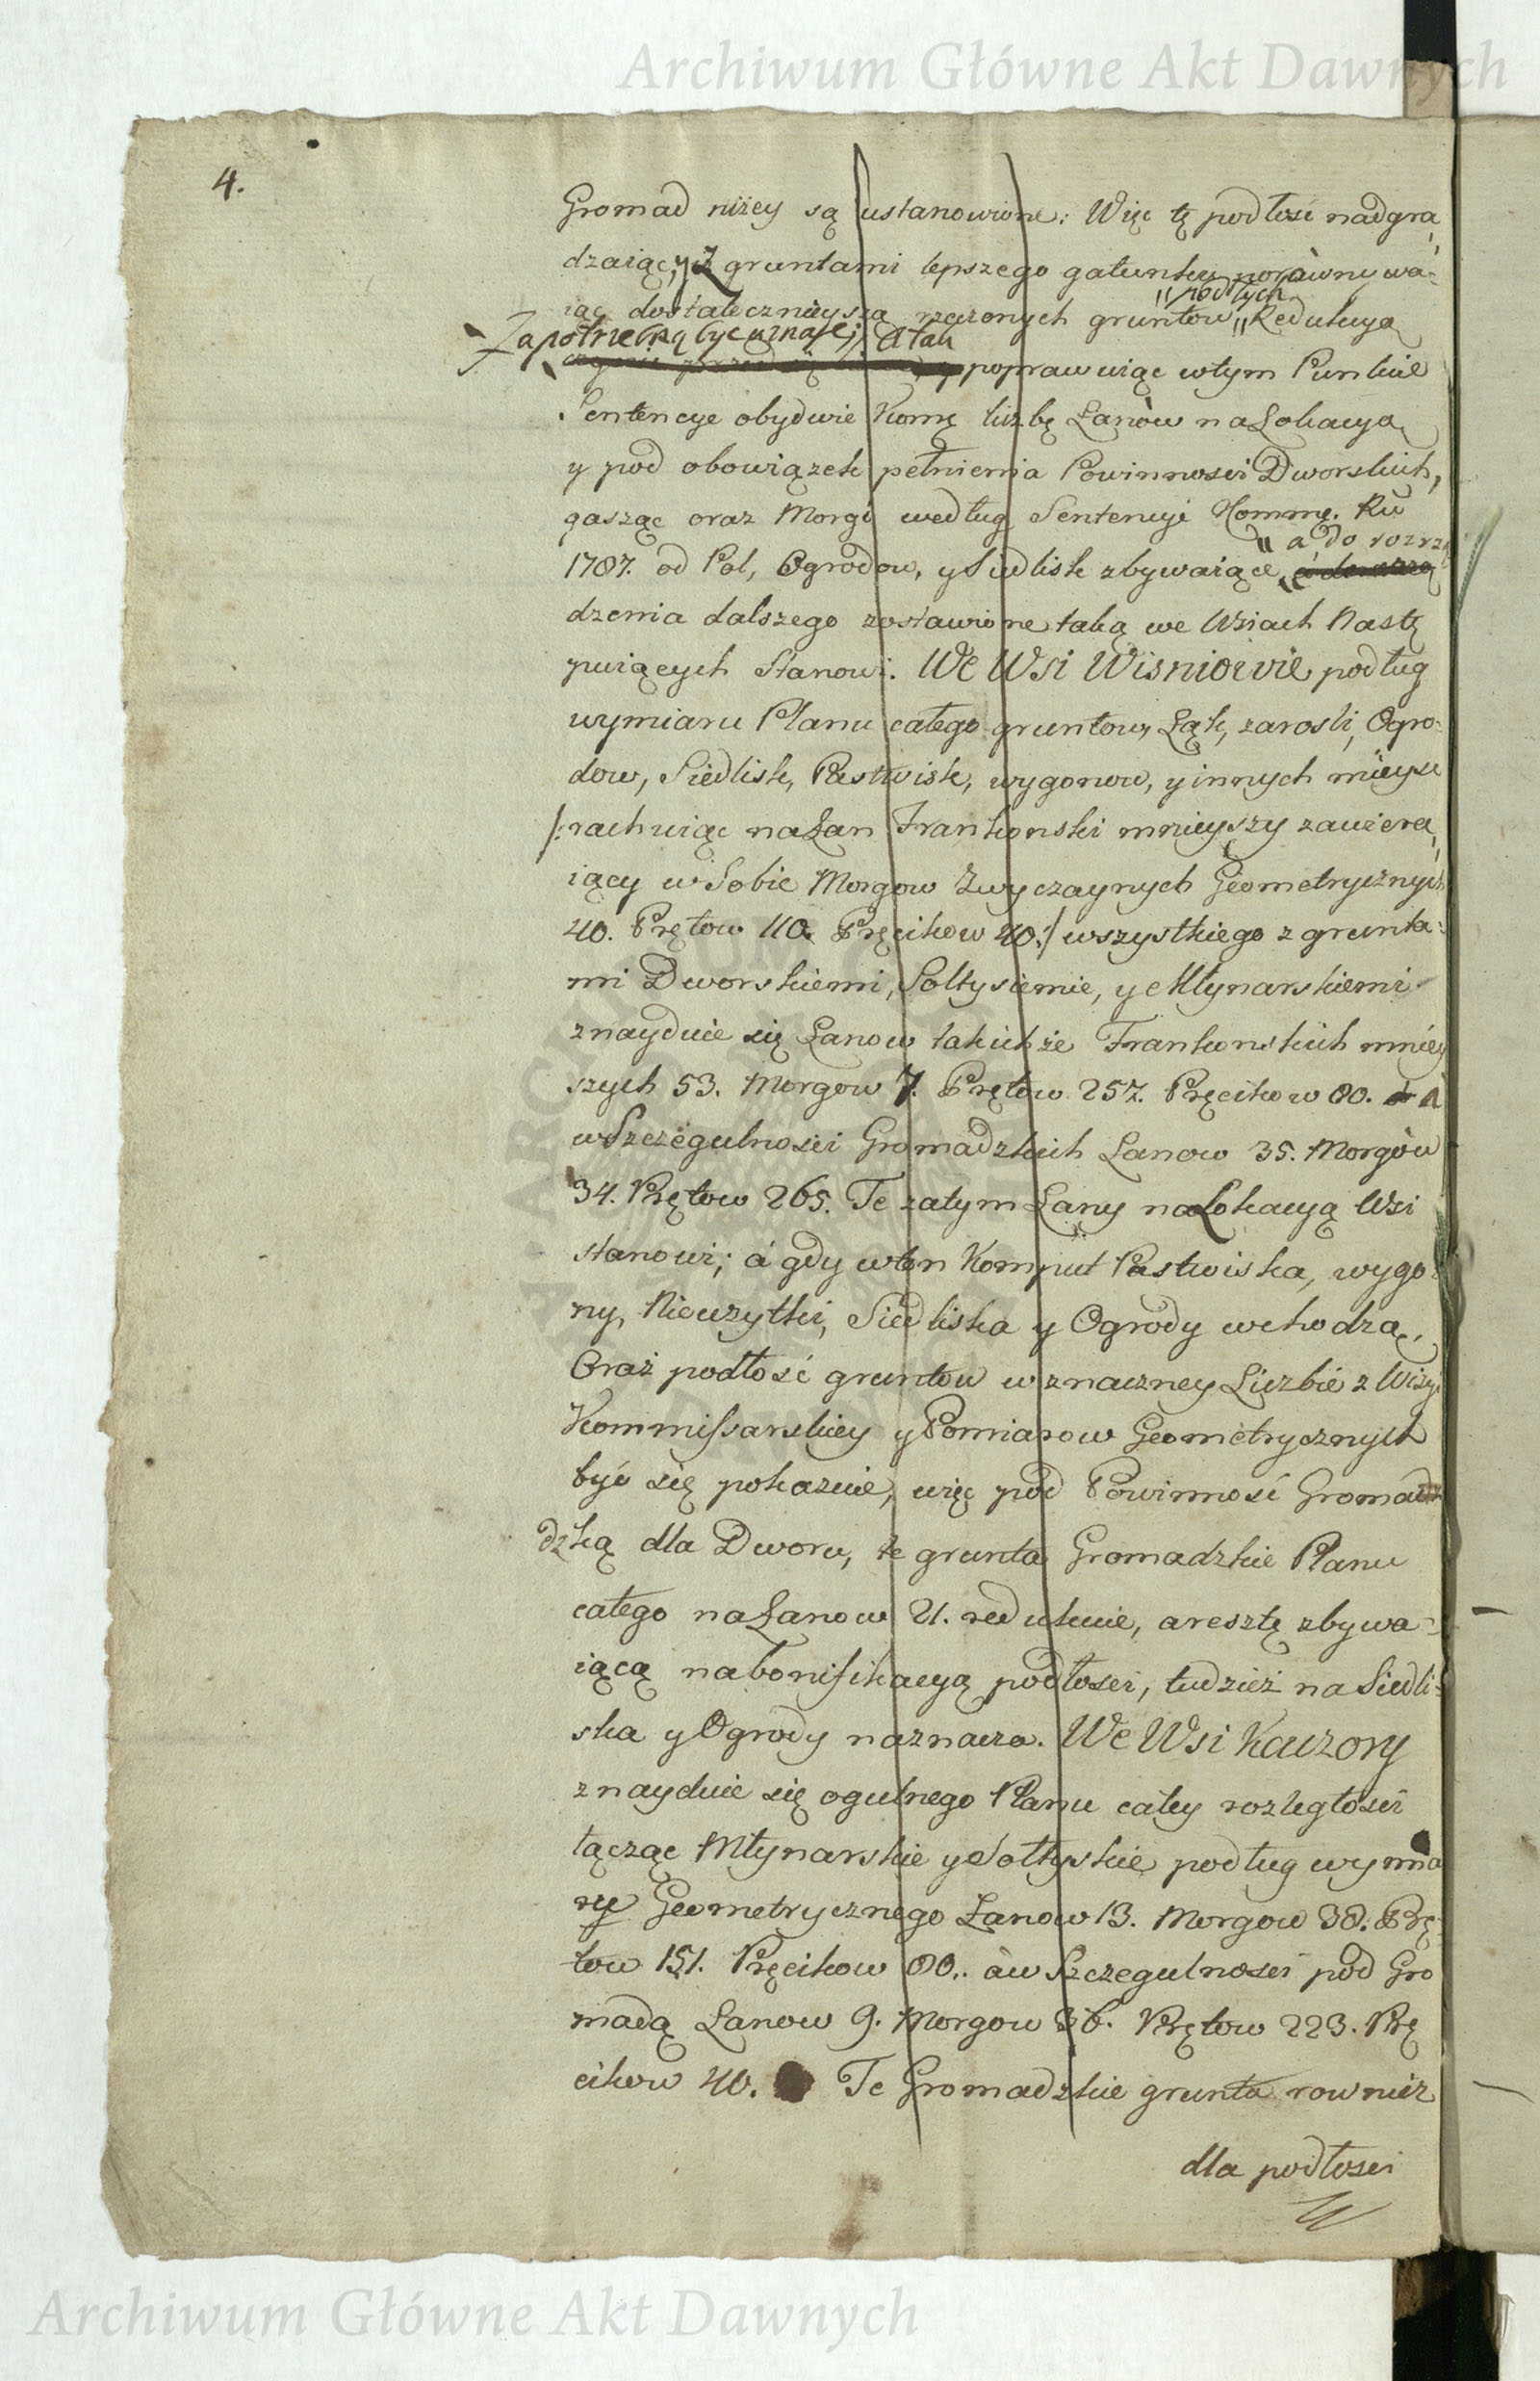 Archiwum Główne Akt Dawnych
4.
Gromad niżey są ustanowione: Więc tę podłość nadgra
dzaiąc, y z gruntami lepszego gatunku porównywa-
"podłych
iąc dostatecznieyszą rzeczonych gruntow "Redukcyą
Zapotrzebną być uznaie; A tak
poprawuiąc w tym Punkcie
Sentencye obydwie Kommę liczbę Łanòw na Lokacyą
y pod obowiązek pełnienia Powinności Dworskich,
gasząc oraz Morgi według Sentencyi Kommę. Ru
"a do rozrzą
1787. od Pol, Ogrodow, y Siedlisk zbywaiące,
dzenia dalszego zostawione taką we Wsiach Nastę
puiących Stanowi. We Wsi Wisniowie podług
wymiaru Planu całego gruntow, Łąk, zarosli, Ogro-
dow, Siedlisk, Pastwisk, wygonow, y innych mieysc
/: rachuiąc na Łan Frankonski mnieyszy zawiera,
iący w Sobie Morgow Zwyczaynych Geometrycznych
40. Prętow 110. Pręcikow 40:/ wszystkiego z grunta-
mi Dworskiemi, Sołtysiemie, y Młynarskiemi
znayduie się Łanow takichże Frankonskich mniey
szych 53. Morgow 7. Prętow 257. Pręcikow 80. A
w Szczegulności Gromadzkich Łanow 35. Morgòw
34. Prętow 265. Te zatym Łany na Lokacyą Wsi
stanowi; à gdy w ten Komput Pastwiska, wygo
ny, Nieużytki, Siedliska y Ogrody wchodzą,
Oraz podłość gruntow w znaczney Liczbie z Wizyi
Kommissarskiey y Pomiarow Geometrycznych
być się pokazuie, więc pod Powinność Gromadz
dzką dla Dworu, te grunta Gromadzkie Planu
całego na Łanow 21. redukuie, a resztę zbywa-
iącą na bonifikacyą podłości, tudzież na Siedli-
ska y Ogrody naznacza. We Wsi Kaczory
znayduie się ogulnego Planu całey rozległości
łącząc Młynarskie y Sołtyskie podług wymia
ru Geometrycznego Łanow 13. Morgow 38. Prę-
tow 151. Pręcikow 80.. à w Szczegulności pod Gro
madą Łanow 9. Morgow 36. Prętow 223. Prę
cikow 40. Te Gromadzkie grunta rownież
dla podłości
Archiwum Główne Akt Dawnych